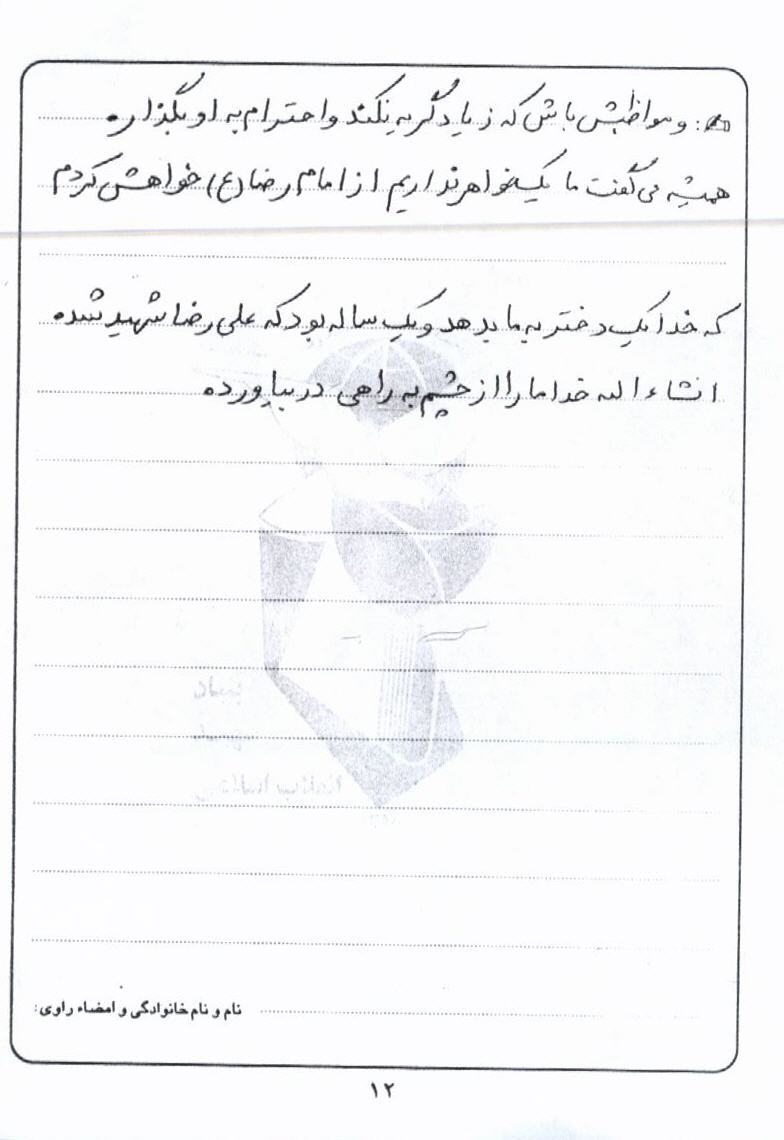 : و مواظبش باش که زیاد گریه نکند و احترام به او بگذار.
همیشه می گفت ما یک خواهر نداریم از امام رضا (ع) خواهش کردم
که خدا یک دختر به ما بدهد و یک ساله بود که علی رضا شهید شده
انشاء اله خدا ما را از چشم به راهی در بیاورده
نام و نام خانوادگی و امضاء راوی:
۱۲